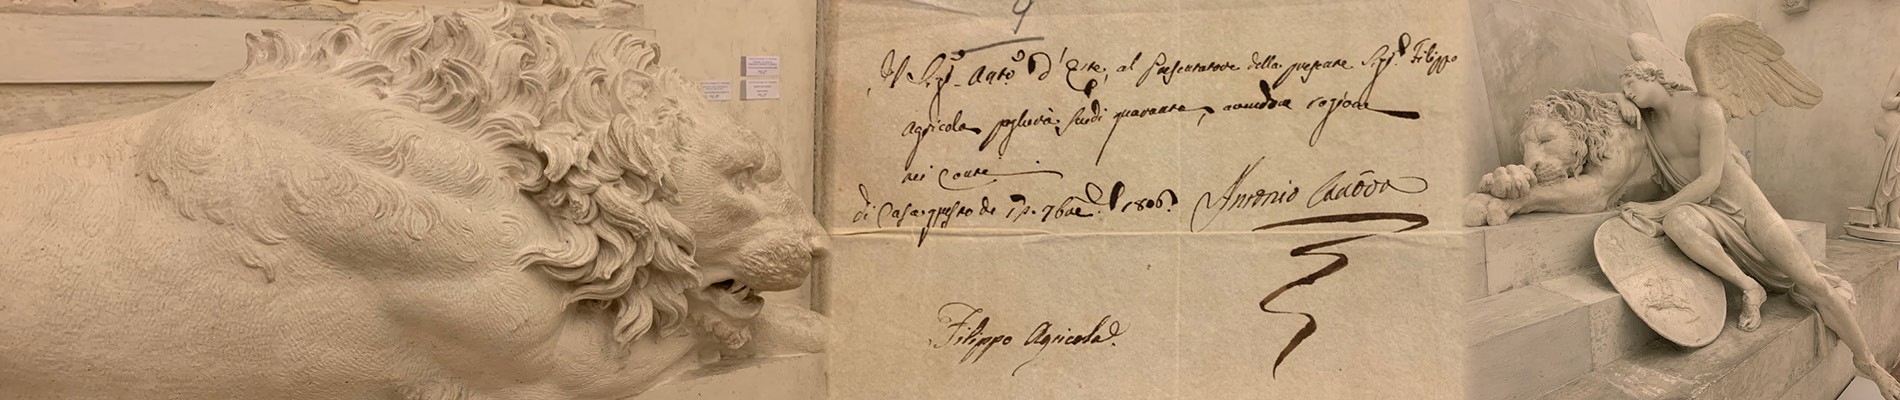 4
Il Sig.r Ant.o d'Este, al presentatore della presente Sig.r Filippo
Agricola pagherà scudi quaranta, avendone ragione
nei Conti
di Casa questo dì 12. 7bre 1806. Antonio Canova
Filippo Agricola.